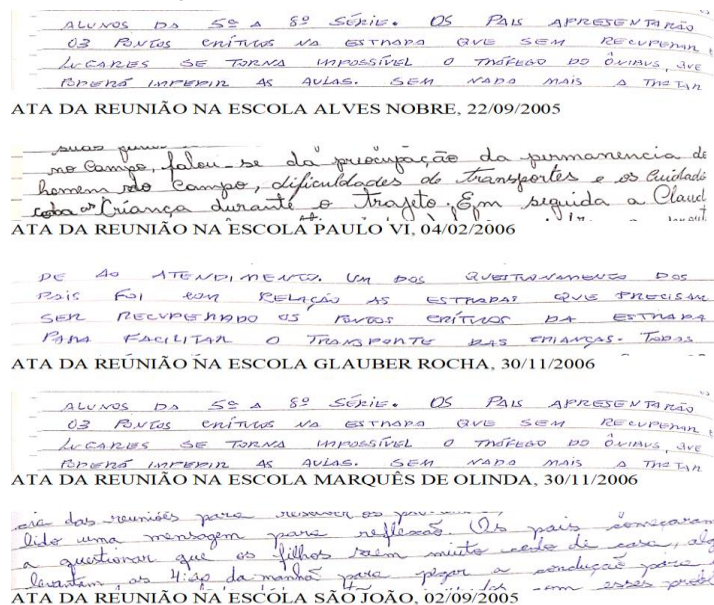 ALUNOS DA 5ª A 8ª SÉRIE. OS PAIS APRESENTARÃO
03 PONTOS CRÍTICOS NA ESTRADA QUE SEM RECUPERAR E
LUGARES SE TORNA IMPOSSÍVEL O TRÁFEGO DO ÔNIBUS, QUE
PODERÁ IMPEDIR AS AULAS. SEM NADA MAIS A TRATAR
ATA DA REUNIÃO NA ESCOLA ALVES NOBRE, 22/09/2005
suas
no Campo, falou-se da preocupação da permanencia do
homem no Campo, dificuldades de transportes e os Cuidado
com as Criança durante o trajeto. Em seguida a Claud
ATA DA REUNIÃO NA ESCOLA PAULO VI, 04/02/2006
DE AO ATENDIMENTO. UM DOS QUESTIONAMENTOS DOS
PAIS FOI COM RELAÇÃO AS ESTRADAS QUE PRECISAM
SER RECUPERADO OS PONTOS CRÍTICOS DA ESTRADA
PARA FACILITAR O TRANSPORTE DAS CRIANÇAS. TODAS
ATA DA REUNIÃO NA ESCOLA GLAUBER ROCHA, 30/11/2006
ALUNOS DA 5ª A 8ª SÉRIE. OS PAIS APRESENTARÃO
03 PONTOS CRÍTICOS NA ESTRADA QUE SEM RECUPERAR E
LUGARES SE TORNA IMPOSSÍVEL O TRÁFEGO DO ÔNIBUS, QUE
PODERÁ IMPEDIR AS AULAS. SEM NADA MAIS A TRATAR
ATA DA REUNIÃO NA ESCOLA MARQUÊS DE OLINDA, 30/11/2006
das reuniões para resolver os
lido uma mensagem para reflexão. Os pais começaram
a questionar que os filhos saem muito cedo de casa, alg
levantam as 4:30 da manhã para pegar a condução para
ATA DA REUNIÃO NA ESCOLA SÃO JOÃO, 02/09/2005